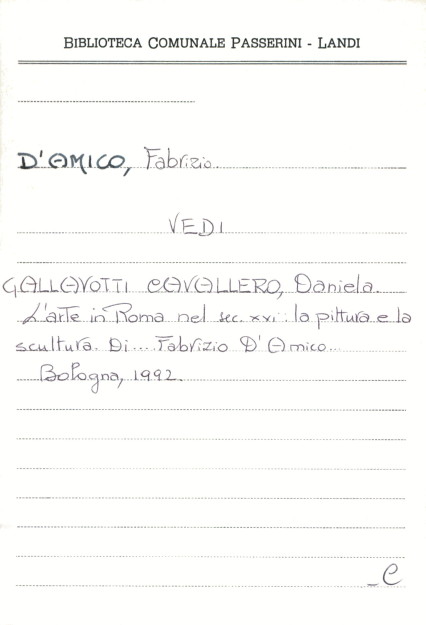 BIBLIOTECA COMUNALE PASSERINI - LANDI
D'AMICO, Fabrizio
VEDI
GALLAVOTTI CAVALLERO, Daniela.
L'arte in Roma nel sec. xxi: la pittura e la
scultura. Di... Fabrizio D'Amico...
Bologna, 1992.
_C